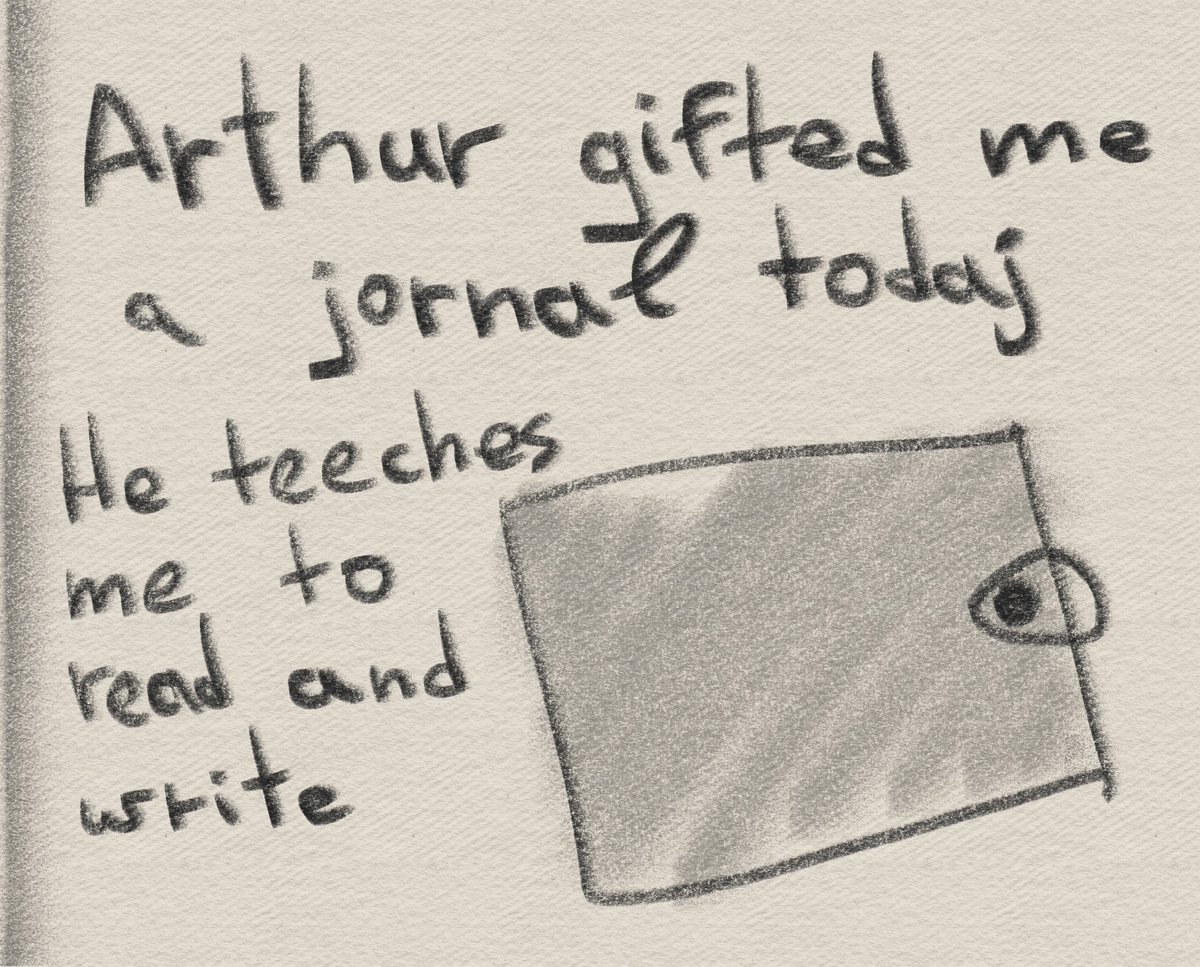 Arthur gifted me
a jornal today
He teeches
me to
read and
write